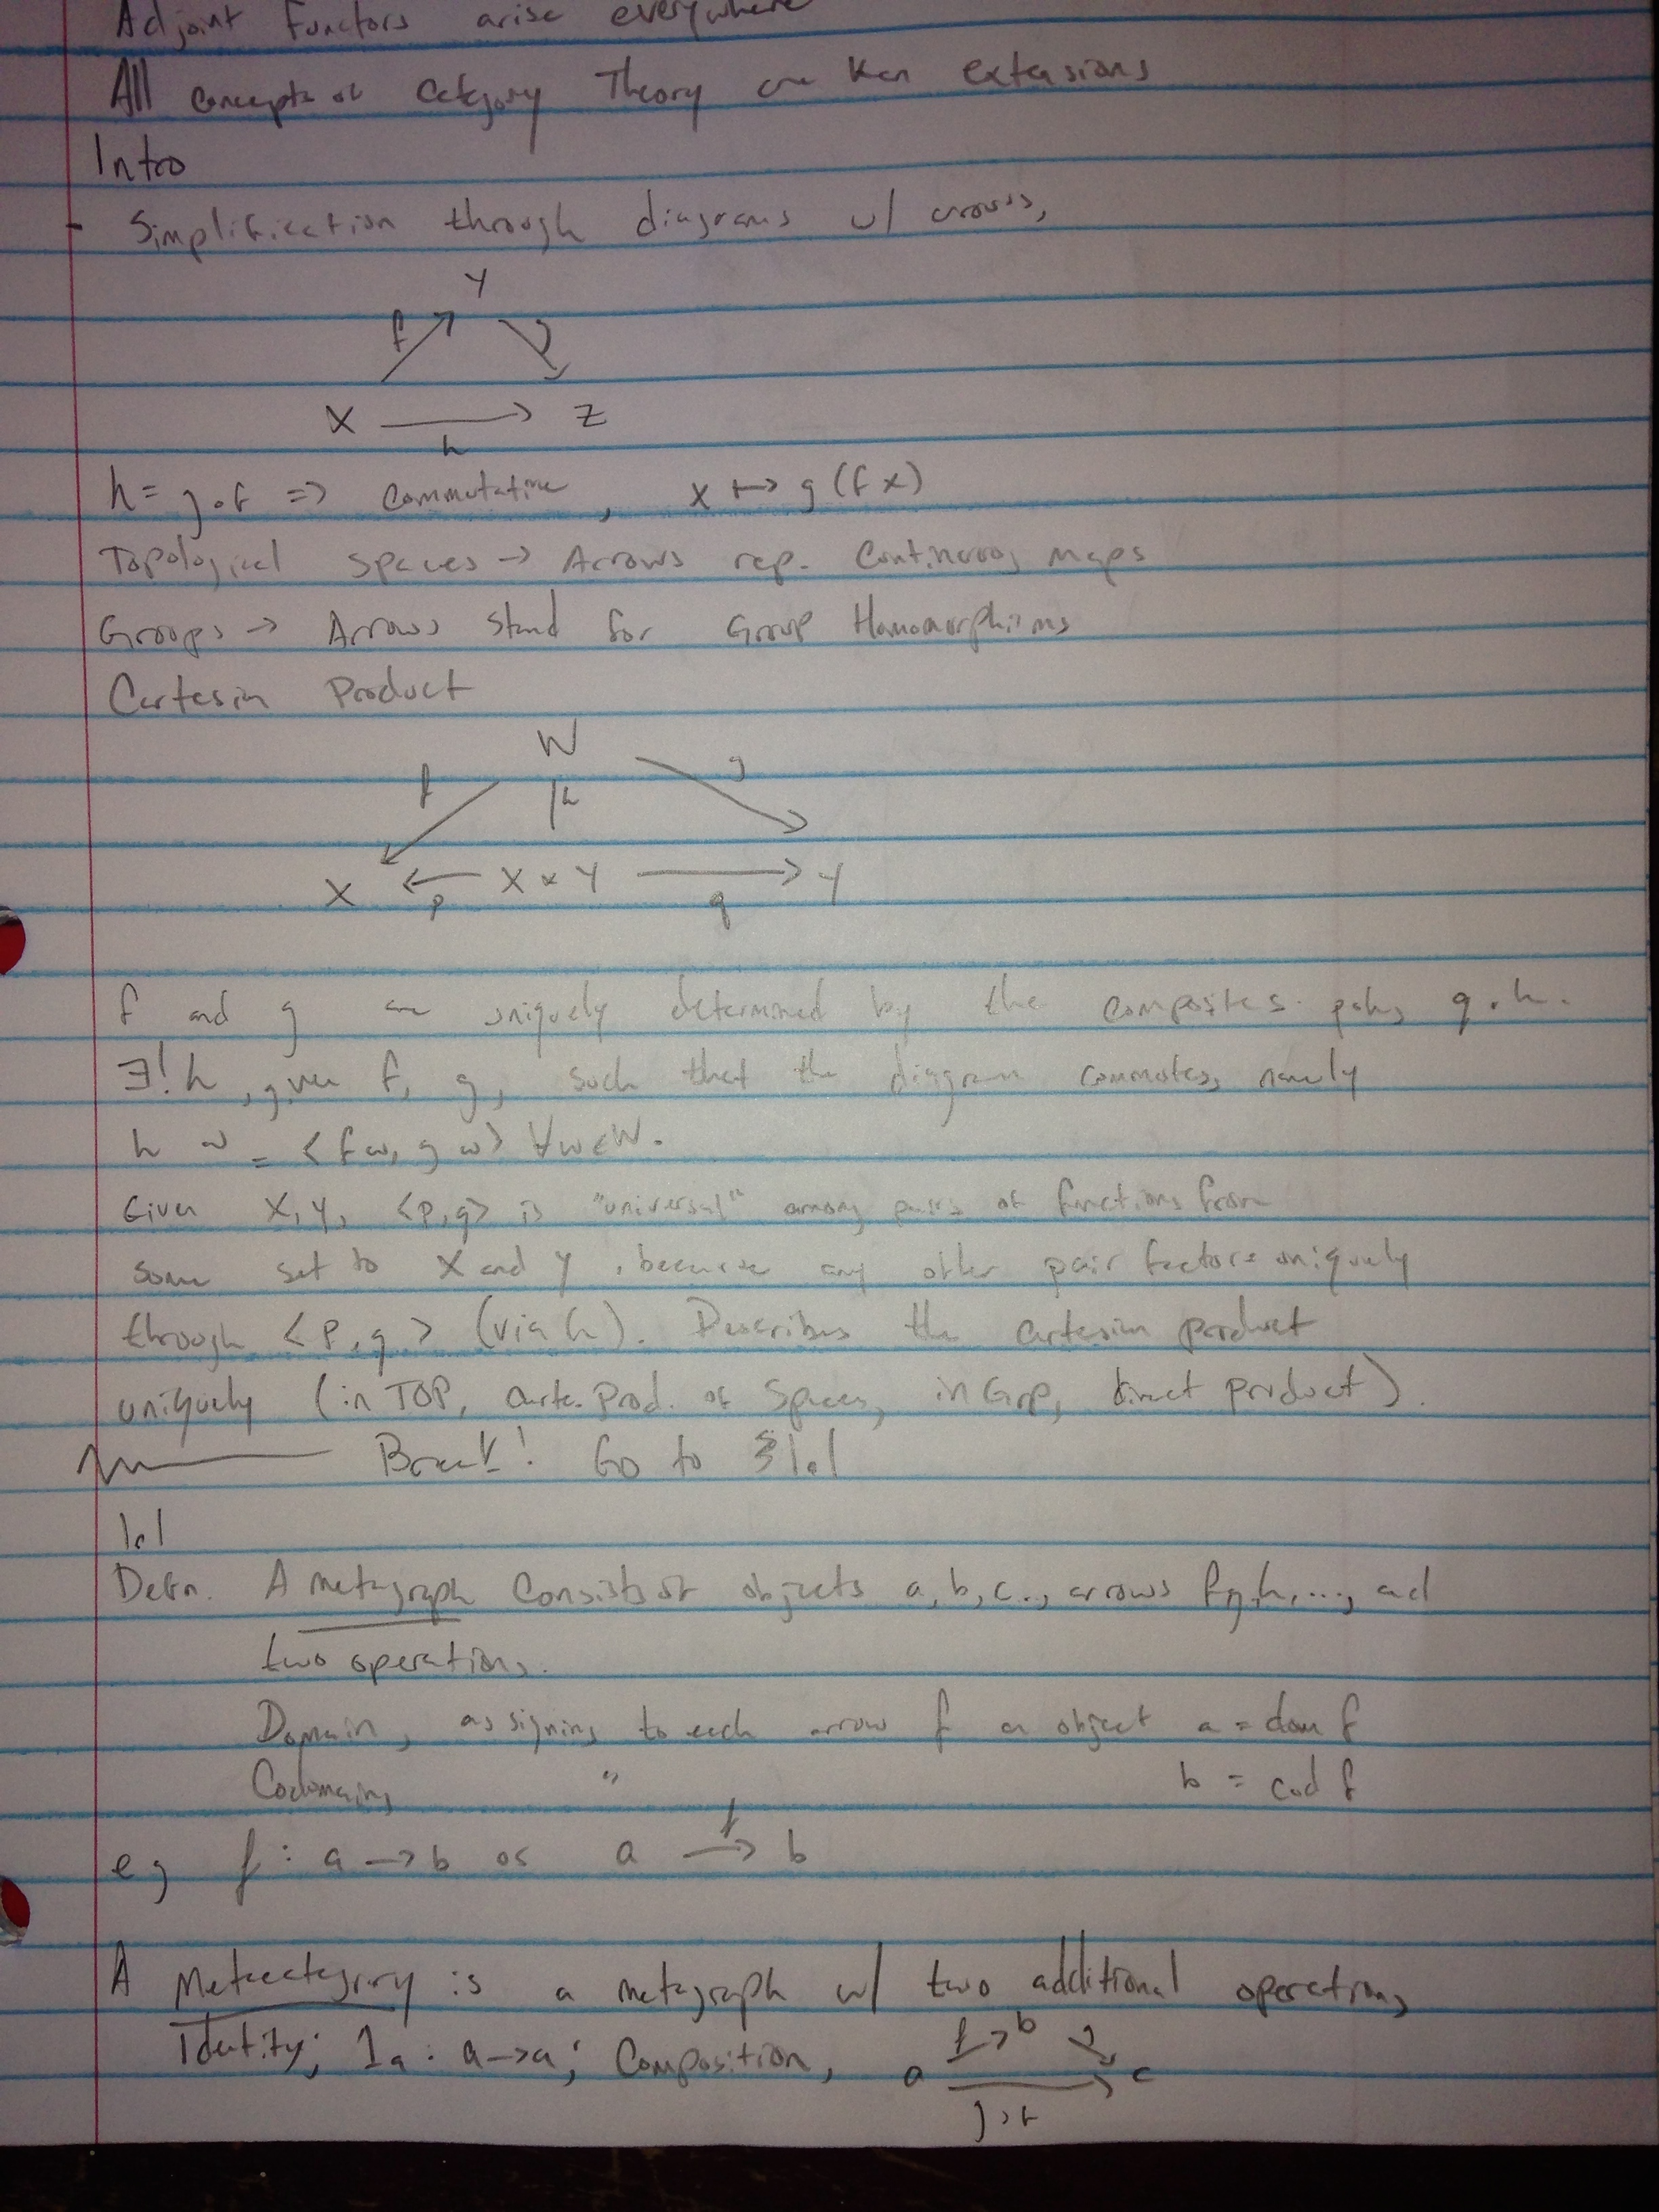 Adjoint Functors arise everywhere
All concepts of Category Theory are Kan extensions
Intro
- Simplification through diagrams w/ arrows,
Y
f g
X → Z
h
h = g∘f => Commutative, x ↦ g(fx)
Topological Spaces → Arrows rep. Continuous Maps
Groups → Arrows stand for Group Homomorphisms
Cartesian Product
W
f h g
X ← X × Y → Y
p q
f and g are uniquely determined by the composites p∘h, q∘h.
∃!h, given f, g, such that the diagram commutes, namely
h w = <fw, g w> ∀w∈W.
Given X, Y, <p,q> is "universal" among pairs of functions from
some set to X and Y, because any other pair factors uniquely
through <p,q> (via h). Describes the cartesian product
uniquely (in TOP, carte. Prod. of Spaces, in Grp, direct product).
Break! Go to §1.1
1.1
Defn. A metagraph consists of objects a, b, c.., arrows f, g, h, ..., and
two operations.
Domain, assigning to each arrow f an object a = dom f
Codomain, " b = cod f
eg f: a → b or a →f b
A Metacategory is a metagraph w/ two additional operations,
Identity; 1a: a → a; Composition, a f→ b g→ c
g∘f